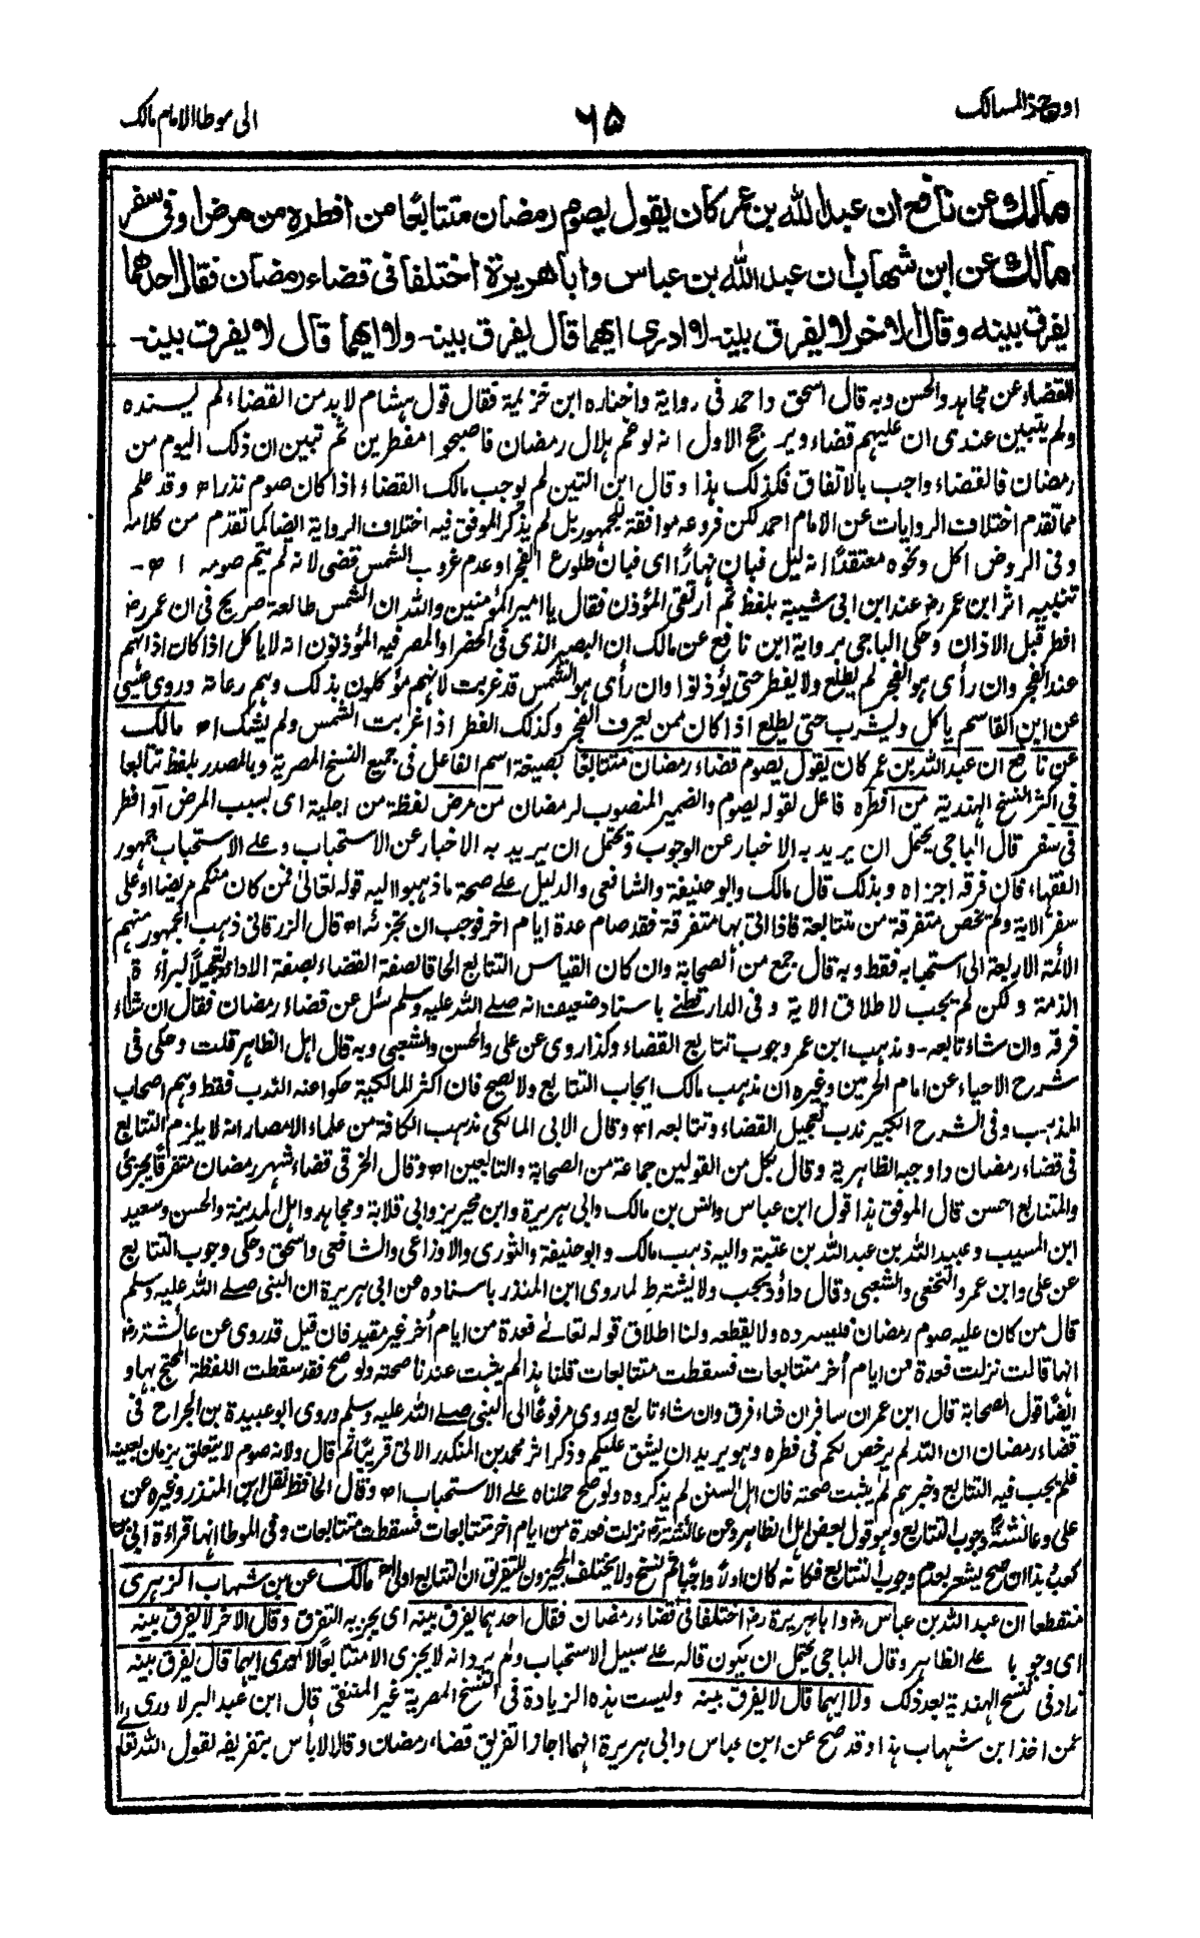 اوجز المسالك
٦٥
الى موطا الامام مالك
مالك عن نافع ان عبد الله بن عمر كان يقول يصوم رمضان متتابعا من افطره من مرض او فى سفر
مالك عن ابن شهاب ان عبد الله بن عباس وابا هريرة اختلفا فى قضاء رمضان فقال احدهما
يفرق بينه وقال الاخر لا يفرق بينه لا ادرى ايهما قال يفرق بينه ولا ايهما قال لا يفرق بينه
القضاء عن مجاهد والحسن وبه قال اسحق واحمد فى رواية واختاره ابن خزيمة فقال قول هشام لابد من القضاء لم يسنده
ولم يتبين عندى ان عليهم قضاء ويرجح الاول انه لو غم هلال رمضان فاصبحوا مفطرين ثم تبين ان ذلك اليوم من
رمضان فالقضاء واجب بالاتفاق فكذلك هذا وقال ابن التين لم يوجب مالك القضاء اذا كان صوم نذر اه وقد علم
مما تقدم اختلاف الروايات عن الامام احمد لكن فروعه موافقة للجمهور بل لم يذكر الموفق فيه اختلاف الرواية ايضا كما تقدم من كلامه
وفى الروض اكل ونحوه معتقدا انه ليل فبان نهارا اى فبان طلوع الفجر او عدم غروب الشمس قضى لانه لم يتم صومه اه -
تنبيه اثر ابن عمر رض عند ابن ابى شيبة بلفظ ثم ارتقى المؤذن فقال يا امير المؤمنين والله ان الشمس طالعة صريح فى ان عمر رض
افطر قبل الاذان وحكى الباجى برواية ابن نافع عن مالك ان البصير الذى فى الحضر او المصر فيه المؤذنون انه لا ياكل اذا كان اذانهم
عند الفجر وان رأى هو الفجر لم يطلع ولا يفطر حتى يؤذنوا وان رأى هو الشمس قد غربت لانهم مؤكلون بذلك وهم رعاته وروى عيسى
عن ابن القاسم ياكل ويشرب حتى يطلع اذا كان ممن يعرف الفجر وكذلك الفطر اذا غربت الشمس ولم يشك اه مالك
عن نافع ان عبد الله بن عمر كان يقول يصوم قضاء رمضان متتابعا بصيغة اسم الفاعل فى جميع النسخ المصرية وبالمصدر بلفظ تتابعا
فى اكثر النسخ الهندية من افطره فاعل لقوله يصوم والضمير المنصوب لرمضان من مرض لفظة من اجلية اى بسبب المرض او افطر
فى سفر قال الباجى يحتمل ان يريد به الاخبار عن الوجوب ويحتمل ان يريد به الاخبار عن الاستحباب وعلى الاستحباب جمهور
الفقهاء فان فرقه اجزاه وبذلك قال مالك وابو حنيفة والشافعى والدليل على صحة ماذهبوا اليه قوله تعالى فمن كان منكم مريضا او على
سفر الاية ولم تخص متفرقة من متتابعة فاذا اتى بها متفرقة فقد صام عدة ايام اخر فوجب ان يجزئه اه قال الزرقانى ذهب الجمهور منهم
الائمة الاربعة الى استحبابه فقط وبه قال جمع من الصحابة وان كان القياس التتابع الحاقا لصفة القضاء بصفة الاداء وتعجيلا لبراءة
الذمة ولكن لم يجب لاطلاق الاية وفى الدارقطنى باسناد ضعيف انه صلى الله عليه وسلم سئل عن قضاء رمضان فقال ان شاء
فرقه وان شاء تابعه - ومذهب ابن عمر وجوب تتابع القضاء وكذا روى عن على والحسن والشعبى وبه قال اهل الظاهر قلت وحكى فى
شرح الاحياء عن امام الحرمين وغيره ان مذهب مالك ايجاب التتابع ولا يصح فان اكثر المالكية حكوا عنه الندب فقط وهم اصحاب
المذهب وفى الشرح الكبير ندب تعجيل القضاء وتتابعه اه وقال الابى المالكى مذهب الكافة من علماء الامصار انه لا يلزم التتابع
فى قضاء رمضان واوجبه الظاهرية وقال بكل من القولين جماعة من الصحابة والتابعين اه وقال الخرقى قضاء شهر رمضان متفرقا يجزئ
والمتتابع احسن قال الموفق هذا قول ابن عباس وانس بن مالك وابى هريرة وابن محيريز وابى قلابة ومجاهد واهل المدينة والحسن وسعيد
ابن المسيب وعبيد الله بن عبد الله بن عتبة واليه ذهب مالك وابو حنيفة والثورى والاوزاعى والشافعى واسحق وحكى وجوب التتابع
عن على وابن عمر والنخعى والشعبى وقال داؤد يجب ولا يشترط لما روى ابن المنذر باسناده عن ابى هريرة ان النبى صلى الله عليه وسلم
قال من كان عليه صوم رمضان فليسرده ولا يقطعه ولنا اطلاق قوله تعالى فعدة من ايام أخر غير مقيد فان قيل قد روى عن عائشة رض
انها قالت نزلت فعدة من ايام أخر متتابعات فسقطت متتابعات قلنا هذا لم يثبت عندنا صحته ولو صح فقد سقطت اللفظة المحتج بها و
ايضا قول الصحابة قال ابن عمر ان سافر ان شاء فرق وان شاء تابع وروى مرفوعا الى النبى صلى الله عليه وسلم وروى ابو عبيدة بن الجراح فى
قضاء رمضان ان الله لم يرخص لكم فى فطره وهو يريد ان يشق عليكم وذكر اثر محمد بن المنكدر الاتى قريبا ثم قال ولانه صوم لا يتعلق بزمان بعينه
فلم يجب فيه التتابع وخبرهم لم يثبت صحته فان اهل السنن لم يذكروه ولو صح حملناه على الاستحباب اه وقال الحافظ نقل ابن المنذر وغيره عن
على وعائشة وجوب التتابع وهو قول بعض اهل الظاهر وعن عائشة نزلت فعدة من ايام اخر متتابعات فسقطت متتابعات وفى الموطا انها قراءة ابى بن
كعب هذا ان صح يشعر بعدم وجوب التتابع فكانه كان اولا واجبا ثم نسخ ولا يختلف المجيزون للتفريق ان التتابع اولى اه مالك عن ابن شهاب الزهرى
منقطعا ان عبد الله بن عباس رض وابا هريرة رض اختلفا فى قضاء رمضان فقال احدهما يفرق بينه اى يجزيه التفرق وقال الاخر لا يفرق بينه
اى وجوبا على الظاهر وقال الباجى يحتمل ان يكون قاله على سبيل الاستحباب ولم يرد انه لا يجزى الا متتابعا لا ادرى ايهما قال يفرق بينه
زاد فى النسخ الهندية بعد ذلك ولا ايهما قال لا يفرق بينه وليست هذه الزيادة فى النسخ المصرية غير المنتقى قال ابن عبد البر لا ادرى
عمن اخذ ابن شهاب هذا وقد صح عن ابن عباس وابى هريرة انهما اجازا تفريق قضاء رمضان وقالا لا بأس بتفريقه لقول الله تعا